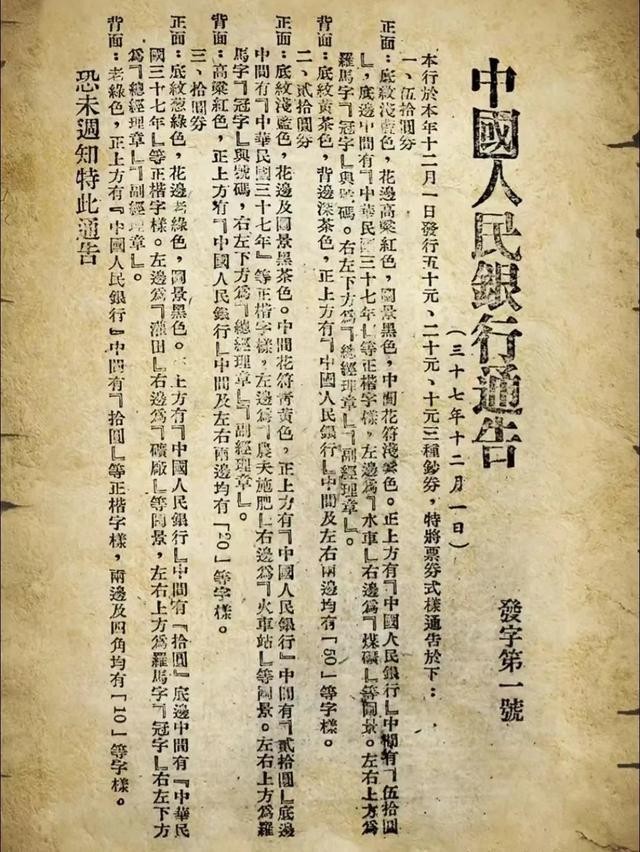 中國人民銀行通告
(三十七年十二月一日)
發字第一號
本行於本年十二月一日發行五十元、二十元、十元三種鈔券，特將票券式樣通告於下：
一、伍拾圓券
正面：底紋淺藍色，花邊高粱紅色，圖景黑色，中間花符淺藍色。正上方有『中國人民銀行』中間有『伍拾圓
』，底邊中間有『中華民國三十七年』等正楷字樣，左邊爲『水車』右邊爲『煤礦』等圖景。左右上方爲
羅馬字『冠字』與號碼。右左下方爲『總經理章』『副經理章』。
背面：底紋黃茶色，背邊深茶色，正上方有『中國人民銀行』中間及左右兩邊均有「50」等字樣。
二、貳拾圓券
正面：底紋淺藍色，花邊及圖景黑茶色。中間花符青黃色，正上方有『中國人民銀行』中間有『貳拾圓』底邊
中間有『中華民國三十七年』等正楷字樣，左邊爲『農夫施肥』右邊爲『火車站』等圖景。左右上方爲羅
馬字『冠字』與號碼，右左下方爲『總經理章』『副經理章』。
背面：高粱紅色，正上方有『中國人民銀行』中間及左右兩邊均有「20」等字樣。
三、拾圓券
正面：底紋葱綠色，花邊老綠色，圖景黑色。上方有『中國人民銀行』中間有『拾圓』底邊中間有『中華民
國三十七年』等正楷字樣。左邊爲『灌田』右邊爲『礦廠』等圖景，左右上方爲羅馬字『冠字』右左下方
爲『總經理章』『副經理章』。
背面：老綠色，正上方有『中國人民銀行』中間有『拾圓』等正楷字樣，兩邊及四角均有「10」等字樣。
恐未週知特此通告